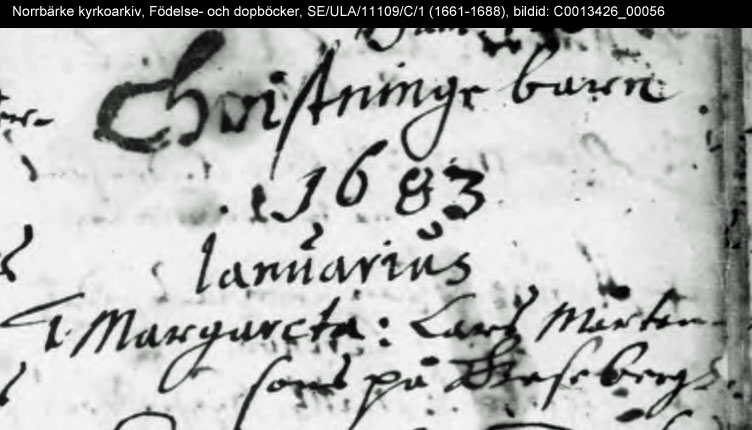 Norrbärke kyrkoarkiv, Födelse- och dopböcker, SE/ULA/11109/C/1 (1661-1688), bildid: C0013426_00056
Christninge barn
1683
Ianuarius
1. Margareta: Lars Mårten-
sons på